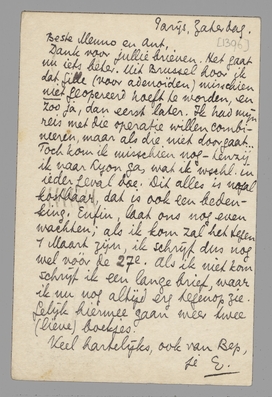 Parijs, Zaterdag.
[1396]
Beste Menno en Ant,
Dank voor jullie brieven. Het gaat
nu iets beter. Uit Brussel hoor ik
dat Gille (voor adenoïden) misschien
niet geopereerd hoeft te worden, en
zoo ja, dan eerst later. Ik had mijn
reis met die operatie willen combi-
neeren, maar als die niet doorgaat..
Toch kom ik misschien nog - tenzij
ik naar Lyon ga, wat ik wschl. in
ieder geval doe. Dit alles is nogal
kostbaar, dat is ook een beden-
king. Enfin, laat ons nog even
wachten; als ik kom zal het tegen
1 Maart zijn, ik schrijf dus nog
wel vóór de 27e. Als ik niet kom
schrijf ik een lange brief, waar
ik nu nog altijd erg tegenop zie.
Gelijk hiermee gaan weer twee
(lieve) boekjes.
Veel hartelijks, ook van Bep,
je E.